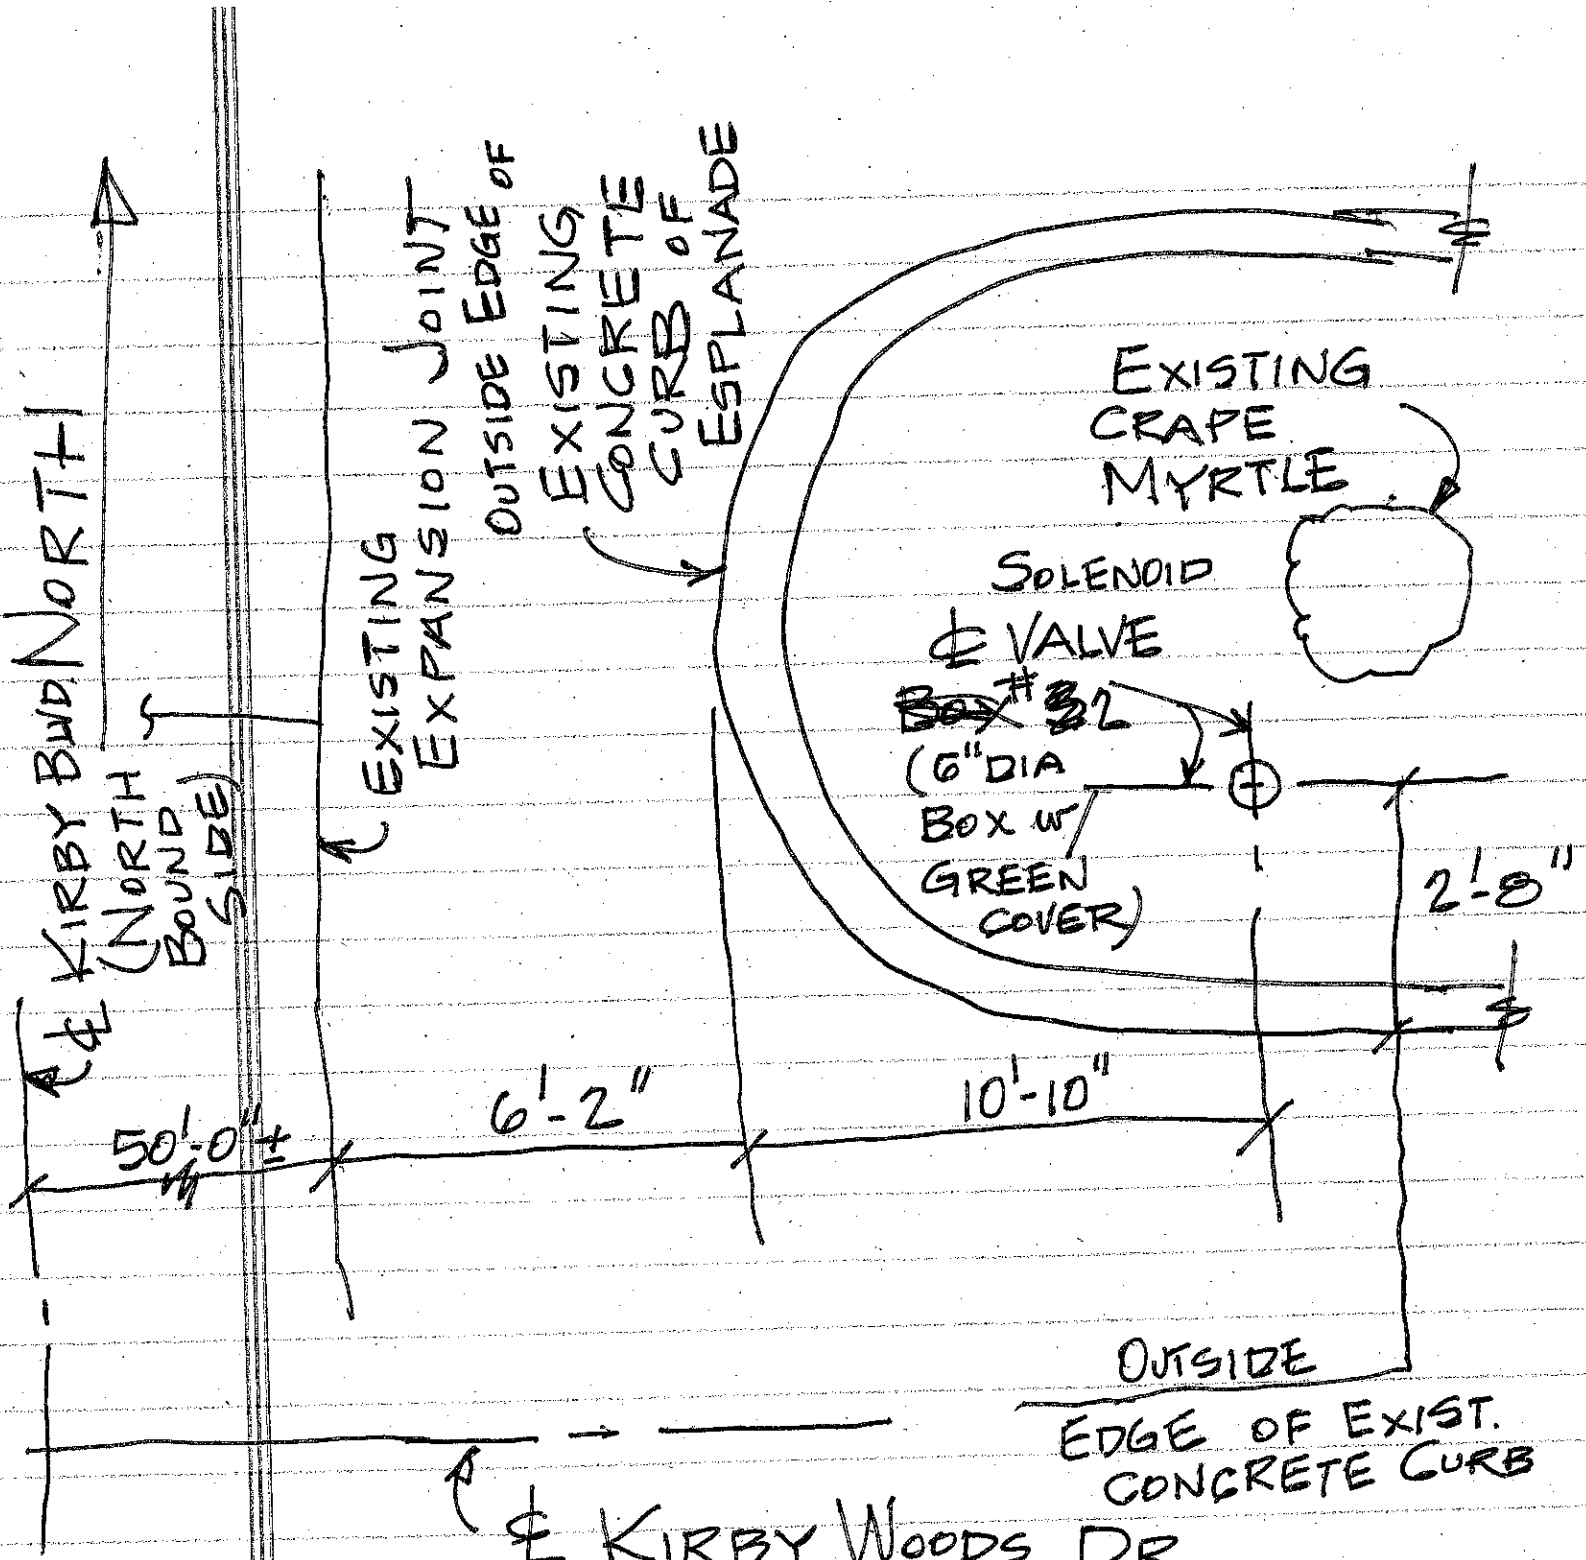 NORTH
℄ KIRBY BLVD.
(NORTH
BOUND
SIDE)
EXISTING
EXPANSION JOINT
OUTSIDE EDGE OF
EXISTING
CONCRETE
CURB OF
ESPLANADE
EXISTING
CRAPE
MYRTLE
SOLENOID
℄ VALVE
BOX #2
(6" DIA
BOX w
GREEN
COVER)
2'-8"
50'-0" ±
6'-2"
10'-10"
OUTSIDE
EDGE OF EXIST.
CONCRETE CURB
℄ KIRBY WOODS DR